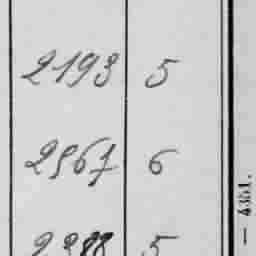 2193 5
2967 6
2288 5
— 4351.